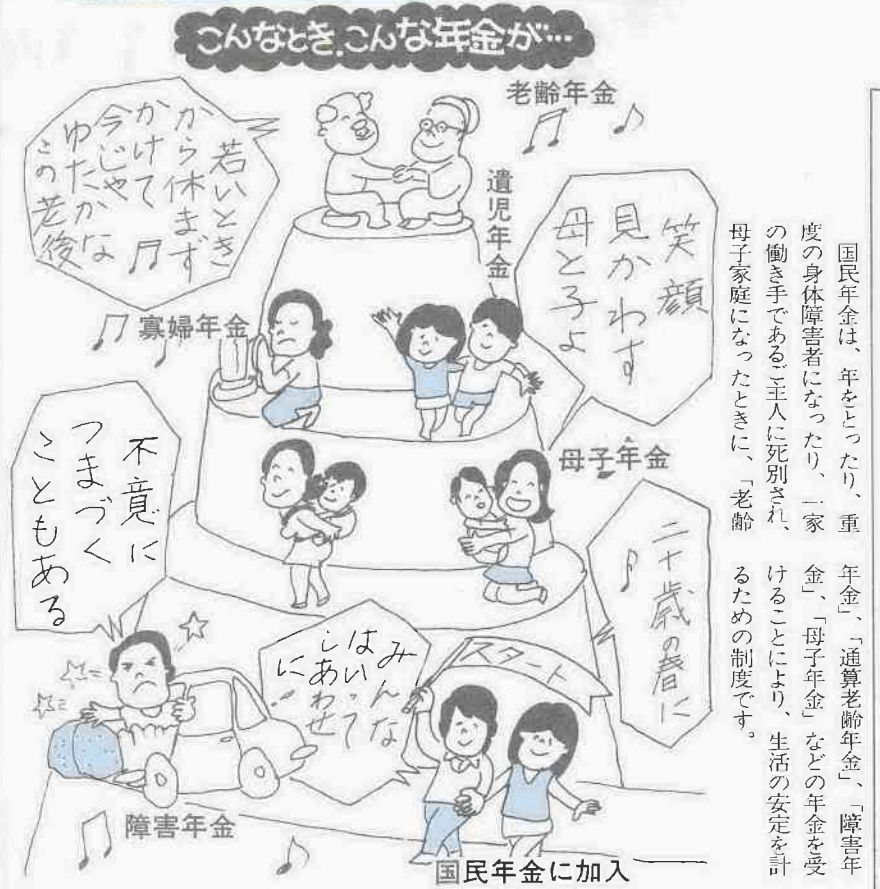 こんなとき、こんな年金が…
老齢年金
若いとき
から休まず
かけて
今じゃ
ゆたかな
この老後
遺児年金
笑顔
見かわす
母と子よ
寡婦年金
母子年金
不意に
つまづく
こともある
二十歳の春に
みんな
はいって
しあわせ
に
スタート
障害年金
国民年金に加入
国民年金は、年をとったり、重
度の身体障害者になったり、一家
の働き手であるご主人に死別され、
母子家庭になったときに、「老齢
年金」、「通算老齢年金」、「障害年
金」、「母子年金」などの年金を受
けることにより、生活の安定を計
るための制度です。